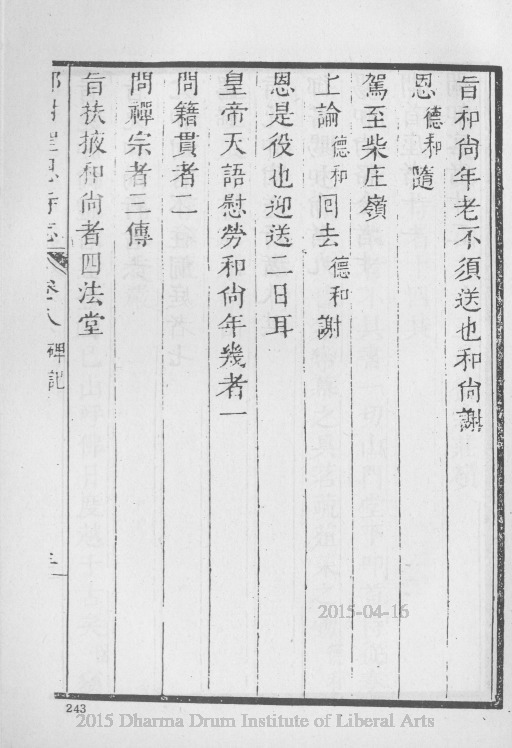 旨和尚年老不須送也和尚謝
恩德和隨
駕至柴庄嶺
上諭德和回去德和謝
恩是役也迎送二日耳
皇帝天語慰勞和尚年幾者一
問籍貫者二
問禪宗者三傳
旨扶掖和尚者四法堂
卷八 碑記
243
2015-04-16
2015 Dharma Drum Institute of Liberal Arts